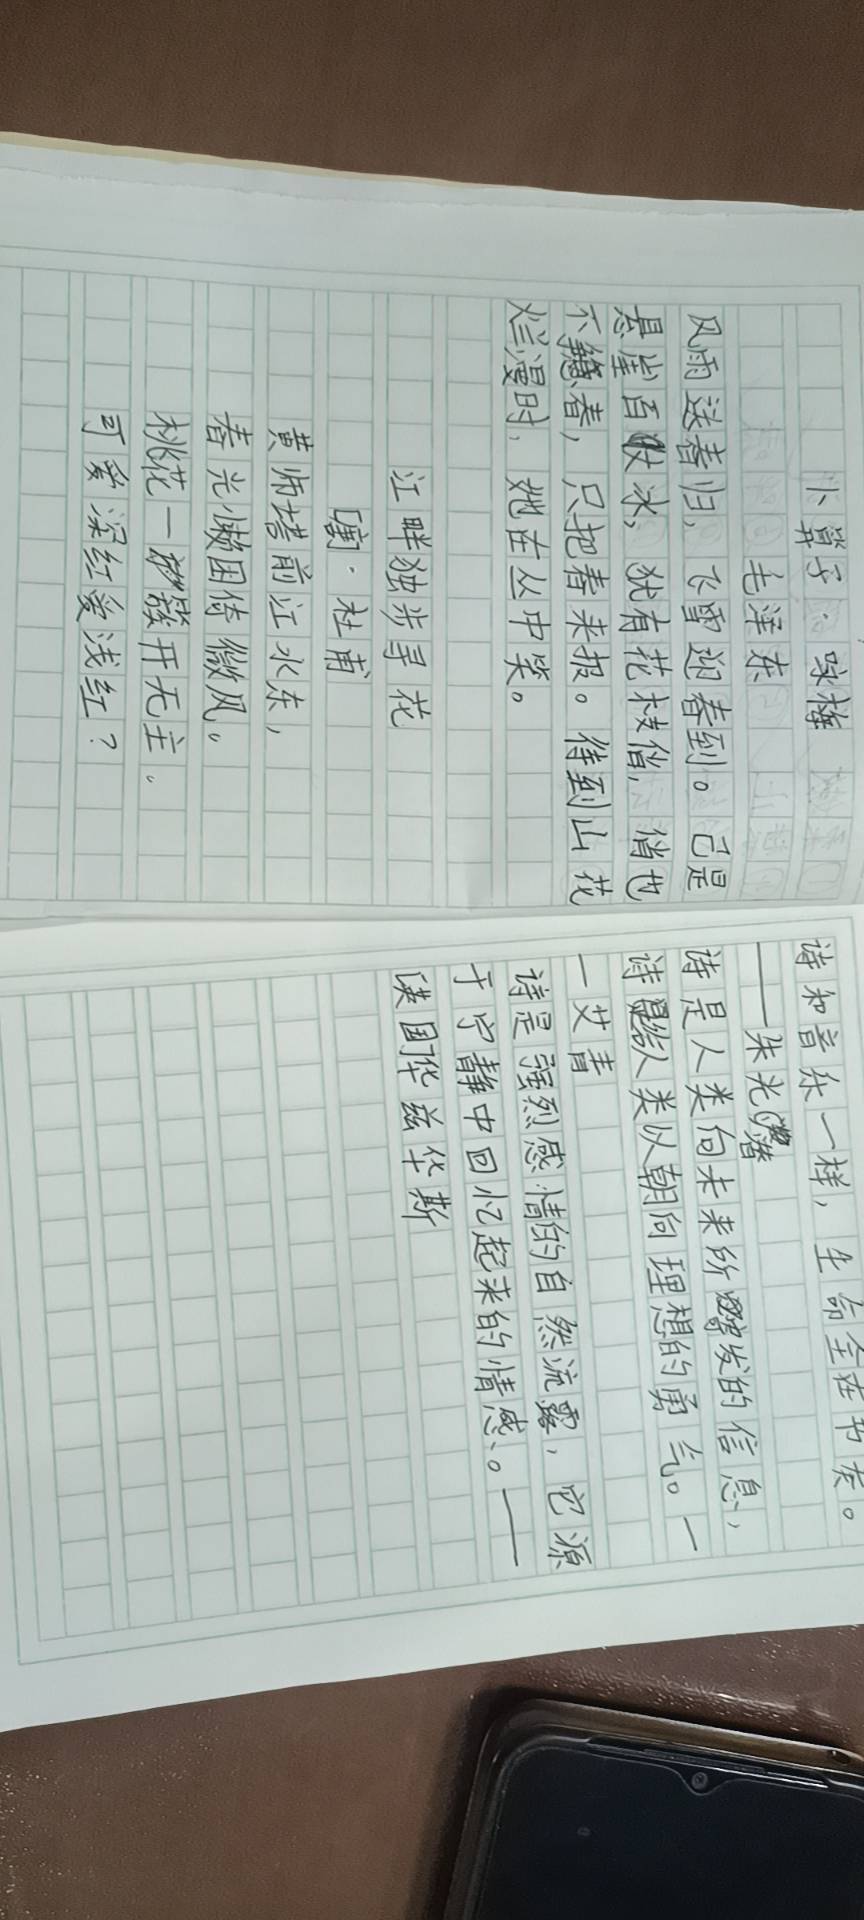 卜算子·咏梅
毛泽东
风雨送春归，飞雪迎春到。已是
悬崖百丈冰，犹有花枝俏，俏也
不争春，只把春来报。待到山花
烂漫时，她在丛中笑。
江畔独步寻花
[唐·杜甫
黄师塔前江水东，
春光懒困倚微风。
桃花一簇开无主。
可爱深红爱浅红？
诗和音乐一样，生命全在节奏。
——朱光潜
诗是人类向未来所发的信息，
诗给人类以朝向理想的勇气。—
—艾青
诗是强烈感情的自然流露，它源
于宁静中回忆起来的情感。——
[英国华兹华斯